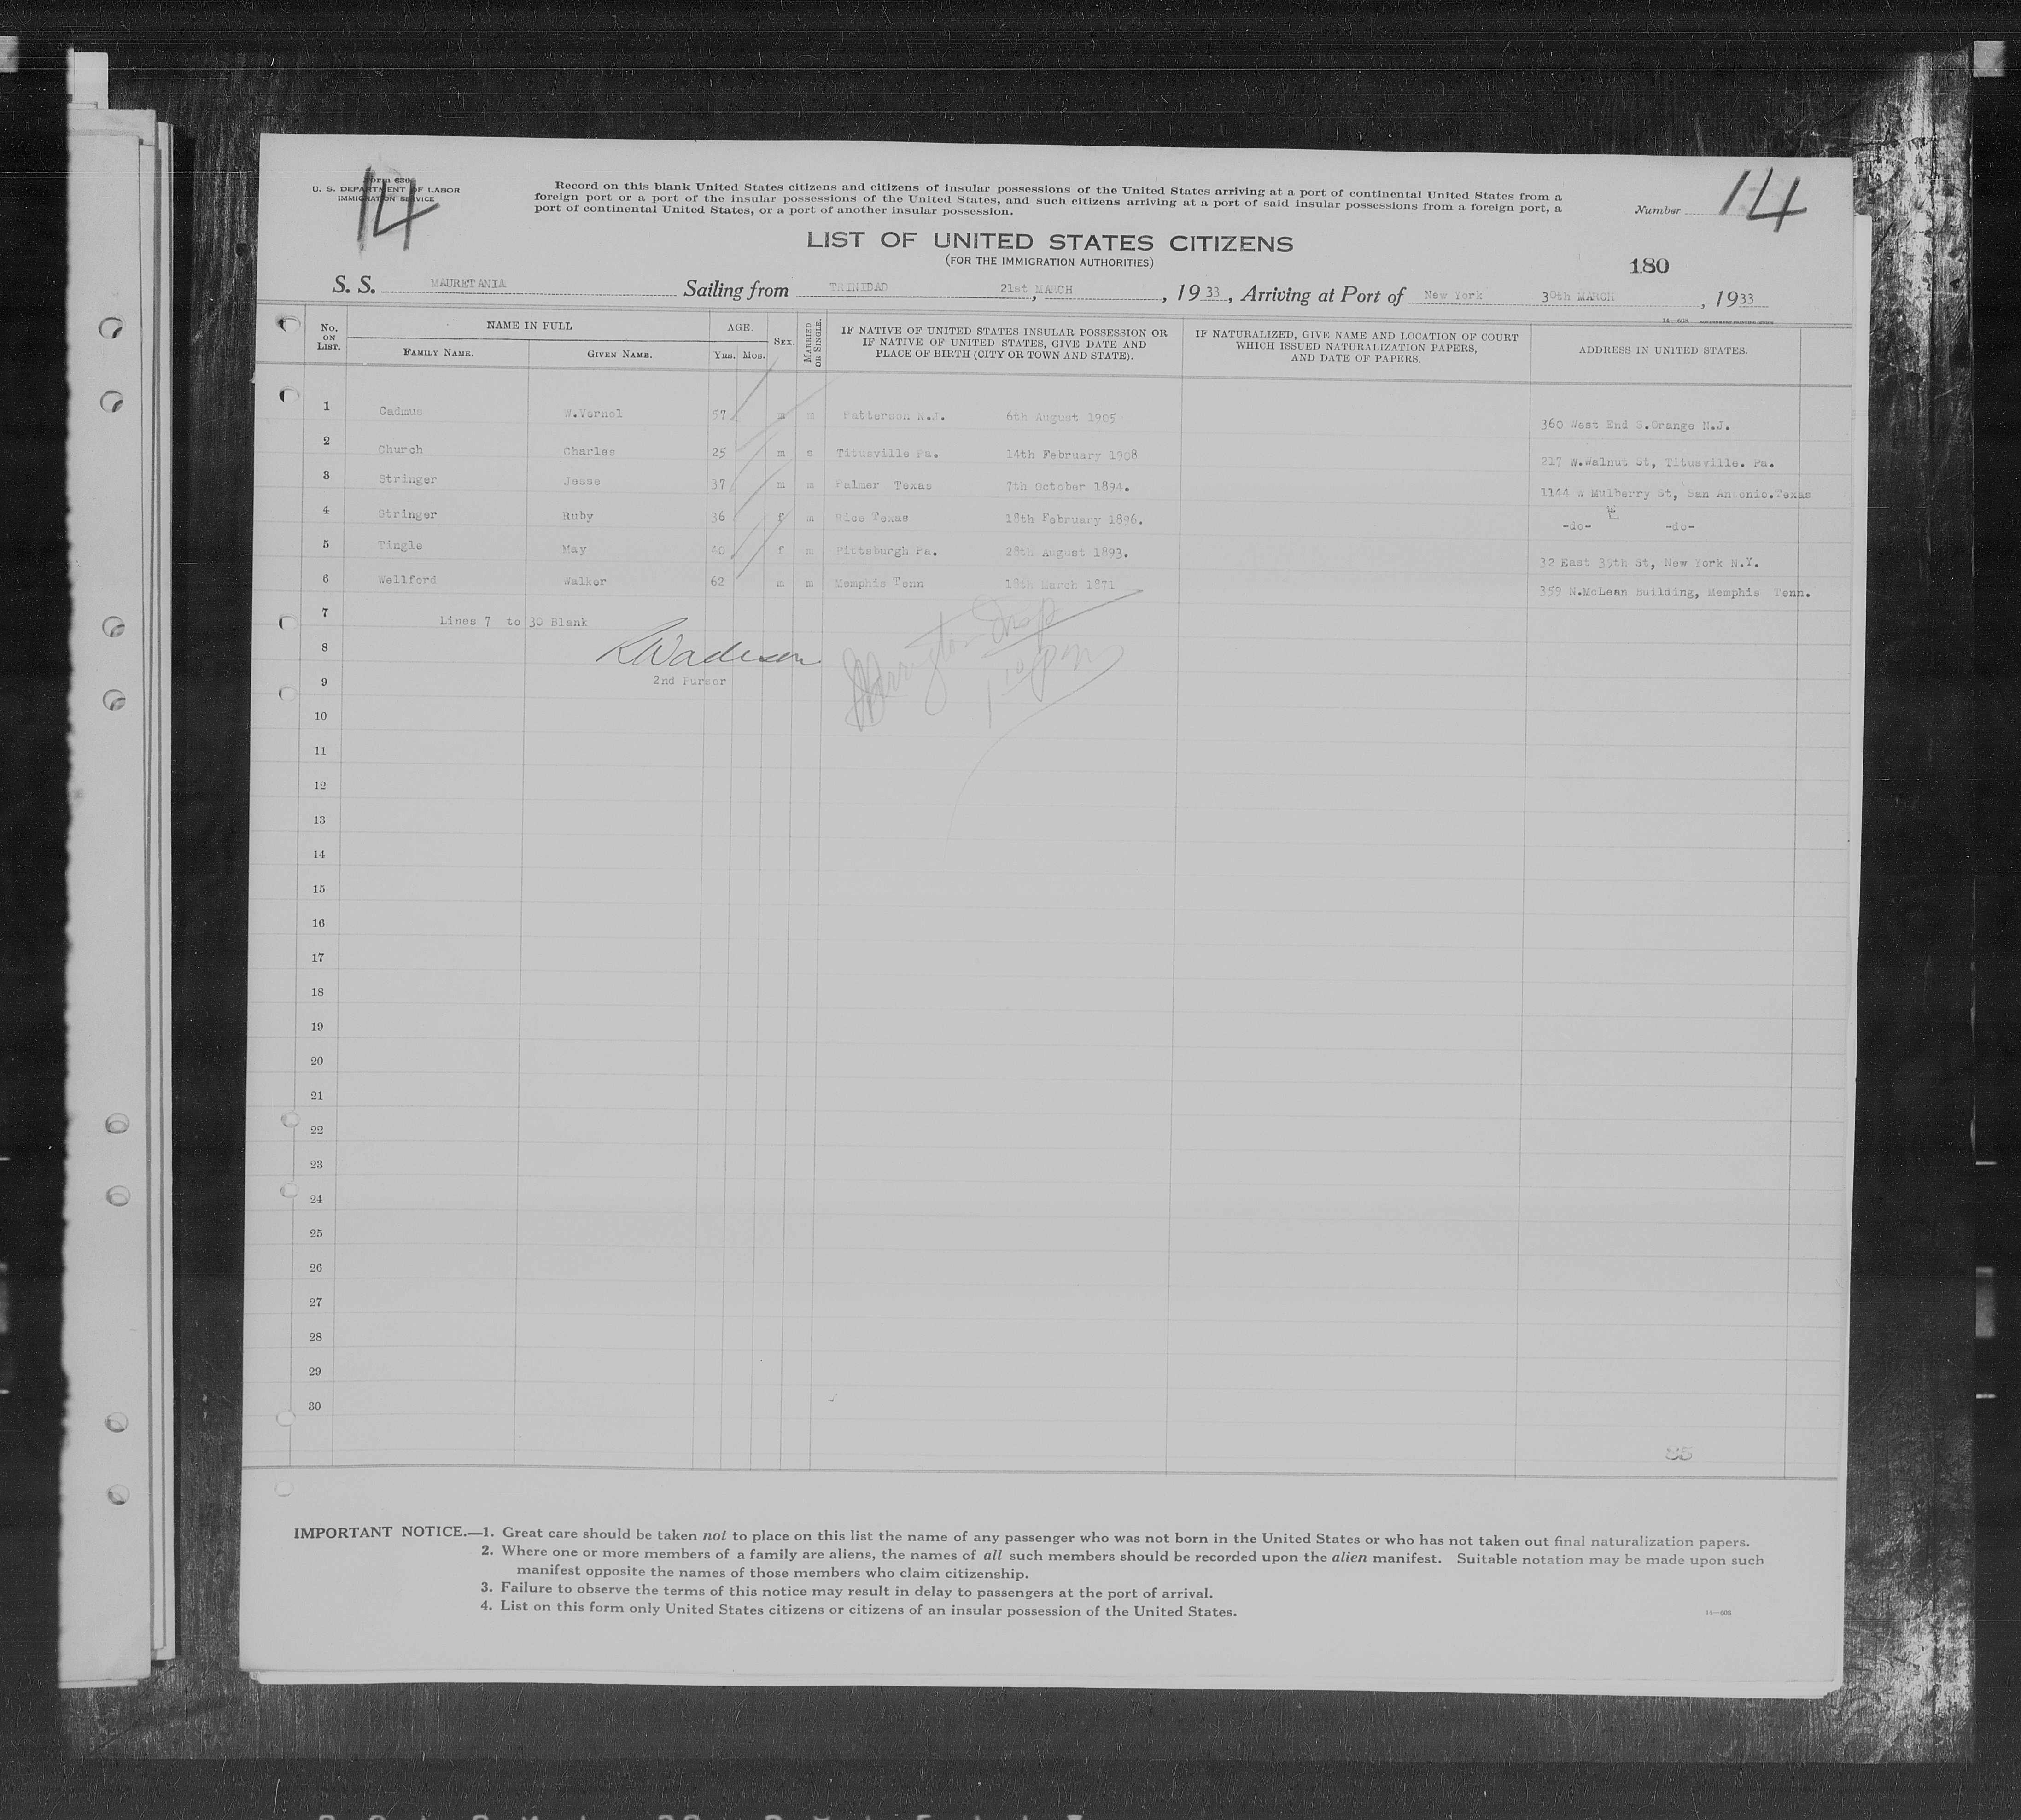 14
Form 630
U. S. DEPARTMENT OF LABOR
IMMIGRATION SERVICE
Record on this blank United States citizens and citizens of insular possessions of the United States arriving at a port of continental United States from a
foreign port or a port of the insular possessions of the United States, and such citizens arriving at a port of said insular possessions from a foreign port, a
port of continental United States, or a port of another insular possession.
Number 14
LIST OF UNITED STATES CITIZENS
(FOR THE IMMIGRATION AUTHORITIES)
180
S. S. MAURETANIA Sailing from TRINIDAD 21st, MARCH, 1933, Arriving at Port of New York 30th MARCH, 1933
No. ON LIST. NAME IN FULL FAMILY NAME. GIVEN NAME. AGE. YRS. MOS. SEX. MARRIED OR SINGLE. IF NATIVE OF UNITED STATES INSULAR POSSESSION OR IF NATIVE OF UNITED STATES, GIVE DATE AND PLACE OF BIRTH (CITY OR TOWN AND STATE). IF NATURALIZED, GIVE NAME AND LOCATION OF COURT WHICH ISSUED NATURALIZATION PAPERS, AND DATE OF PAPERS. ADDRESS IN UNITED STATES.
1 Cadmus W.Vernol 57 m m Patterson N.J. 6th August 1905 360 West End S.Orange N.J.
2 Church Charles 25 m s Titusville Pa. 14th February 1908 217 W.Walnut St, Titusville. Pa.
3 Stringer Jesse 37 m m Palmer Texas 7th October 1894. 1144 W Mulberry St, San Antonio.Texas
4 Stringer Ruby 36 f m Rice Texas 18th February 1896. -do- -do-
5 Tingle May 40 f m Pittsburgh Pa. 28th August 1893. 32 East 39th St, New York N.Y.
6 Wellford Walker 62 m m Memphis Tenn 18th March 1871 359 N.McLean Building, Memphis Tenn.
7 Lines 7 to 30 Blank
8
9 2nd Purser
10
11
12
13
14
15
16
17
18
19
20
21
22
23
24
25
26
27
28
29
30
35
IMPORTANT NOTICE.—1. Great care should be taken not to place on this list the name of any passenger who was not born in the United States or who has not taken out final naturalization papers.
2. Where one or more members of a family are aliens, the names of all such members should be recorded upon the alien manifest. Suitable notation may be made upon such
manifest opposite the names of those members who claim citizenship.
3. Failure to observe the terms of this notice may result in delay to passengers at the port of arrival.
4. List on this form only United States citizens or citizens of an insular possession of the United States.